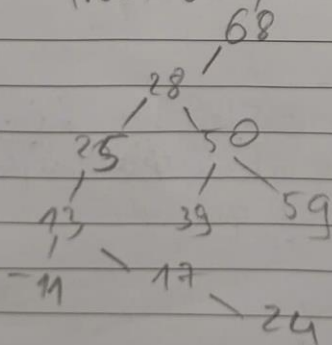 68
28
25 50
13 39 59
-11 17
24